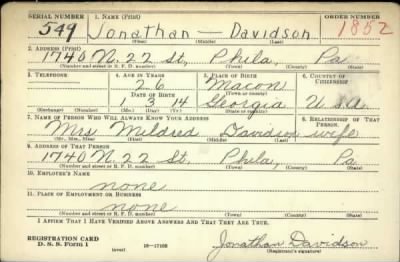 SERIAL NUMBER 1. NAME (Print) ORDER NUMBER
549 Jonathan — Davidson 1852
(First) (Middle) (Last)
2. ADDRESS (Print)
1740 N. 22 St, Phila, Pa
(Number and street or R. F. D. number) (Town) (County) (State)
3. TELEPHONE 4. AGE IN YEARS 5. PLACE OF BIRTH 6. COUNTRY OF CITIZENSHIP
26 Macon
DATE OF BIRTH (Town or county)
1 3 14 Georgia U.S.A.
(Exchange) (Number) (Mo.) (Day) (Yr.) (State or country)
7. NAME OF PERSON WHO WILL ALWAYS KNOW YOUR ADDRESS 8. RELATIONSHIP OF THAT PERSON
Mrs Mildred Davidson wife
(Mr., Mrs., Miss) (First) (Middle) (Last)
9. ADDRESS OF THAT PERSON
1740 N. 22 St. Phila, Pa
(Number and street or R. F. D. number) (Town) (County) (State)
10. EMPLOYER'S NAME
none
11. PLACE OF EMPLOYMENT OR BUSINESS
none
(Number and street or R. F. D. number) (Town) (County) (State)
I AFFIRM THAT I HAVE VERIFIED ABOVE ANSWERS AND THAT THEY ARE TRUE.
REGISTRATION CARD
D. S. S. Form 1 (over) 16—17105 Jonathan Davidson
(Registrant's signature)